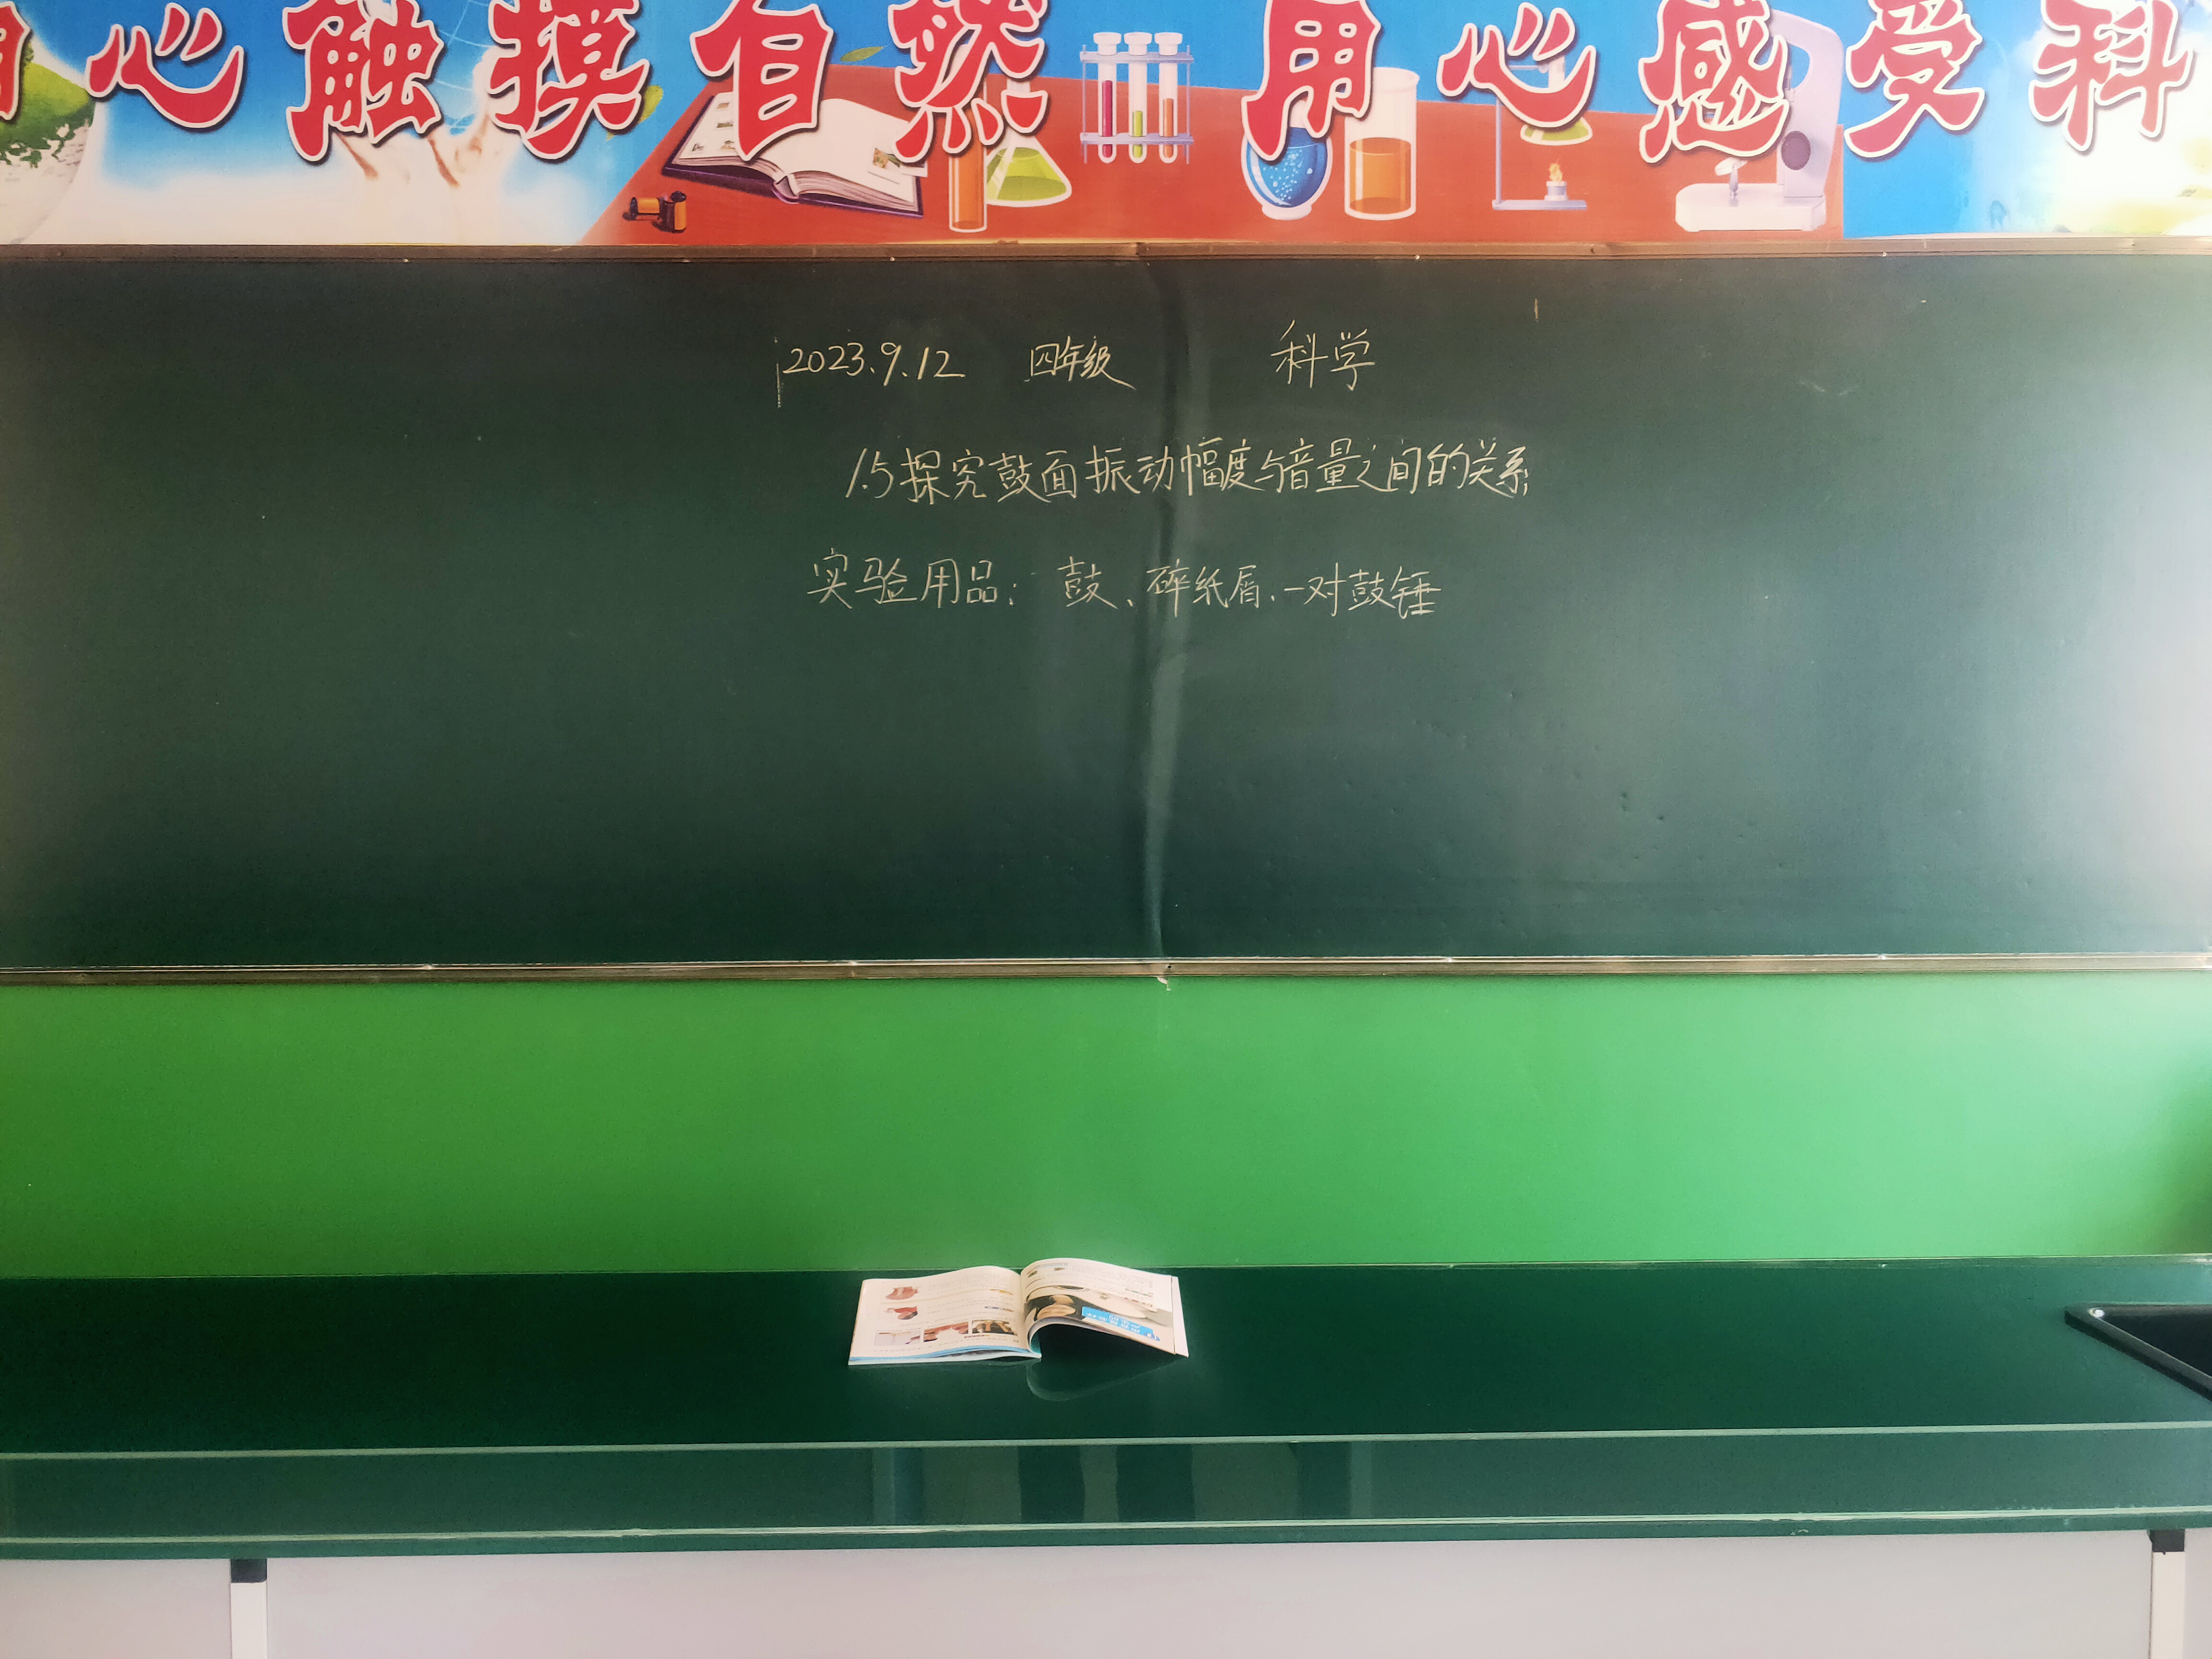 用心触摸自然 用心感受科
2023.9.12 四年级 科学
1.5探究鼓面振动幅度与音量之间的关系
实验用品：鼓、碎纸屑、一对鼓锤